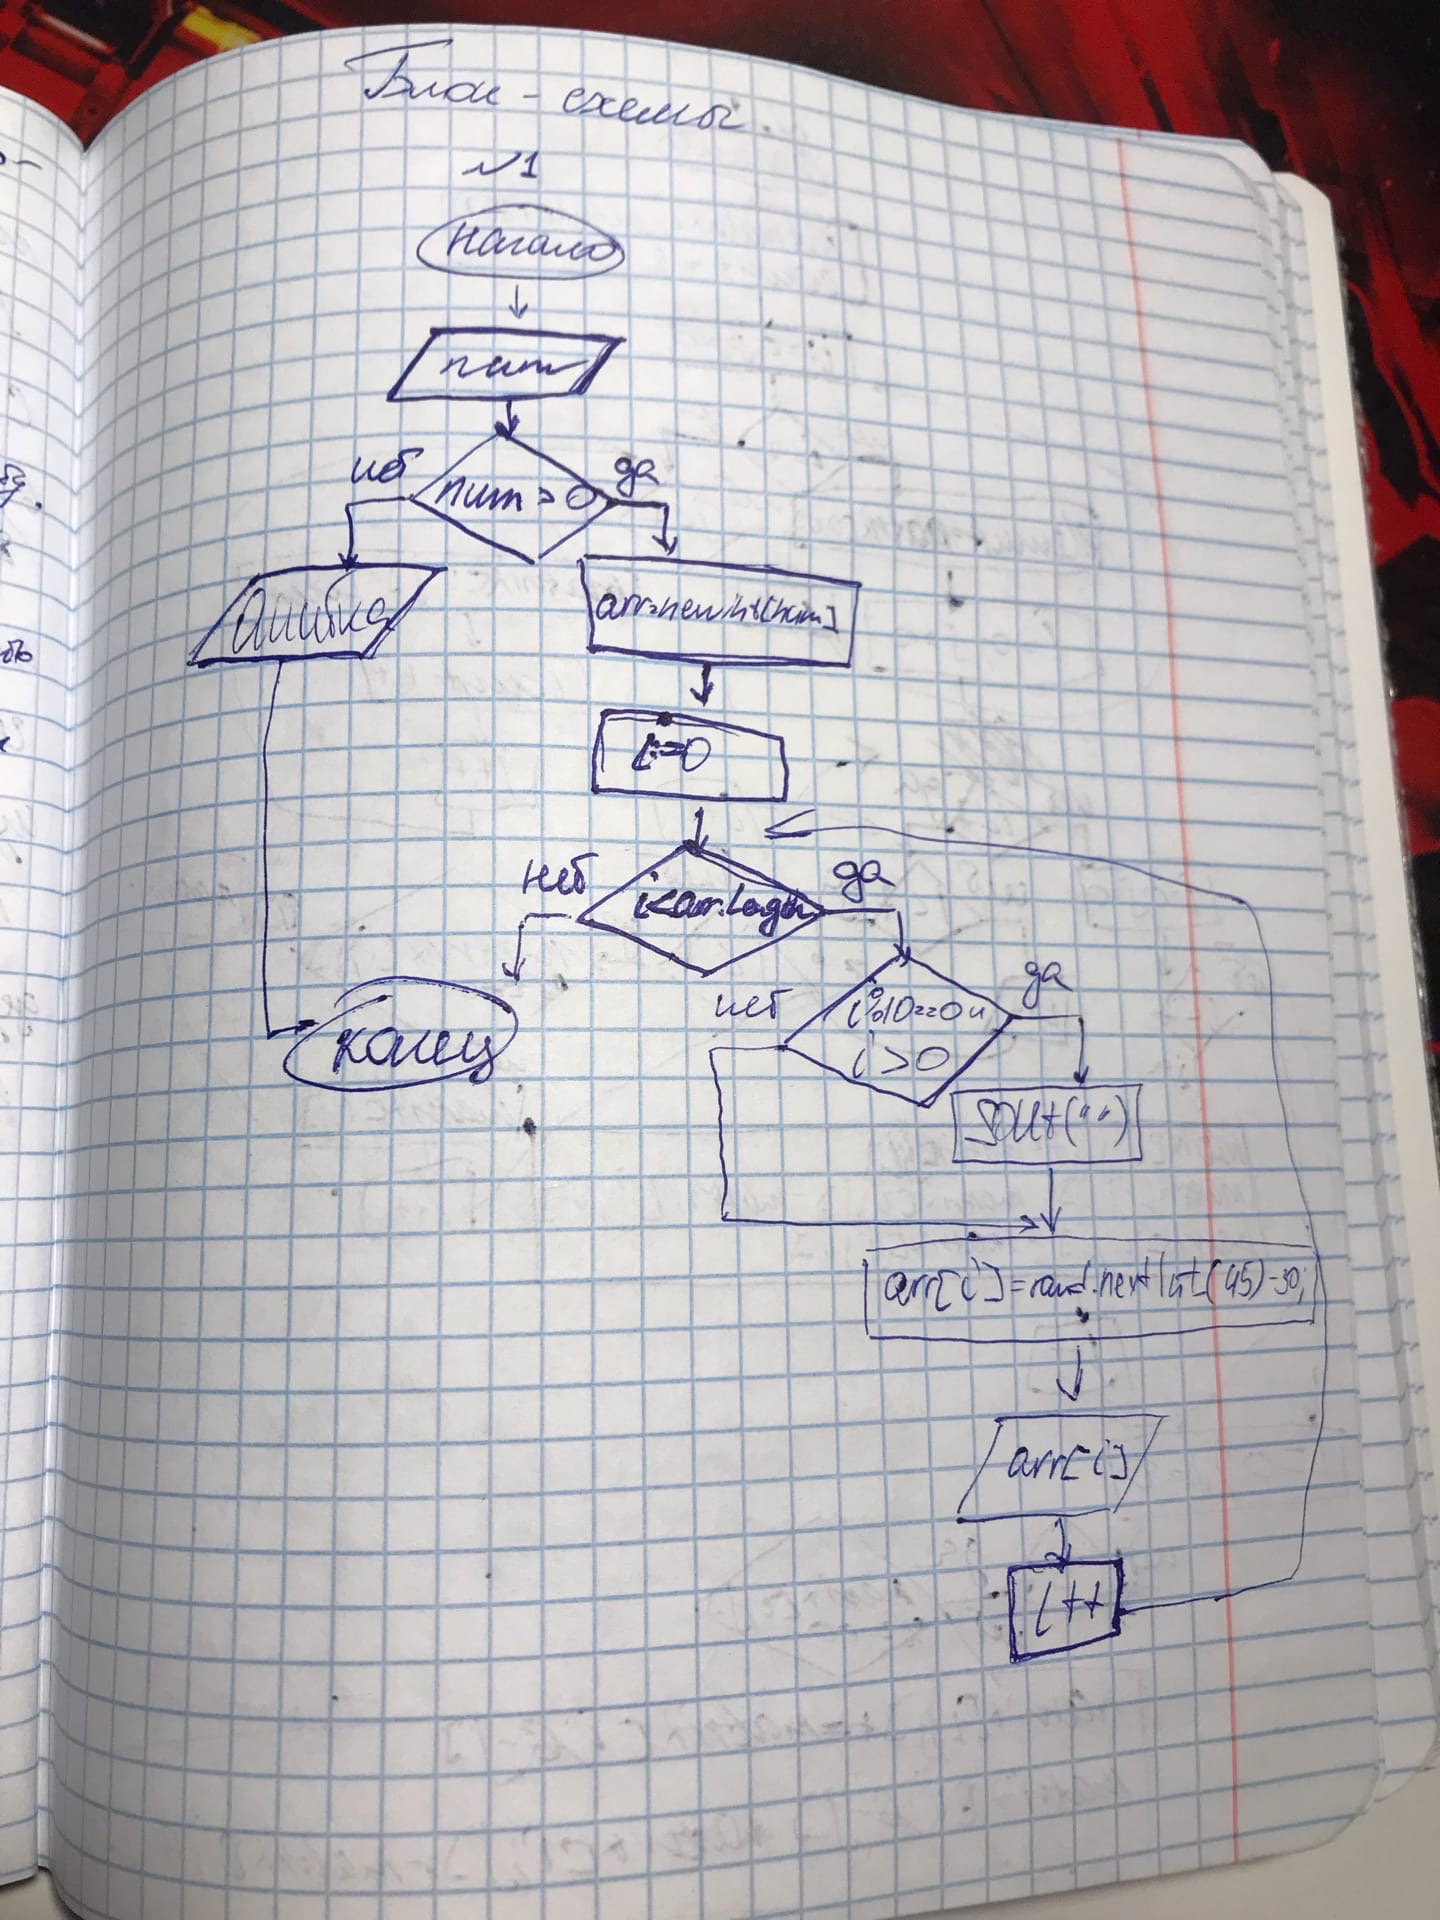 Блок-схемы
№1
начало
num
нет
да
num > 0
ошибка
arr=new int[num]
i=0
нет
да
i<arr.length
конец
нет
да
i%10==0 и
i>0
sout(" ")
arr[i]=rand.nextInt(45)-30;
arr[i]
i++